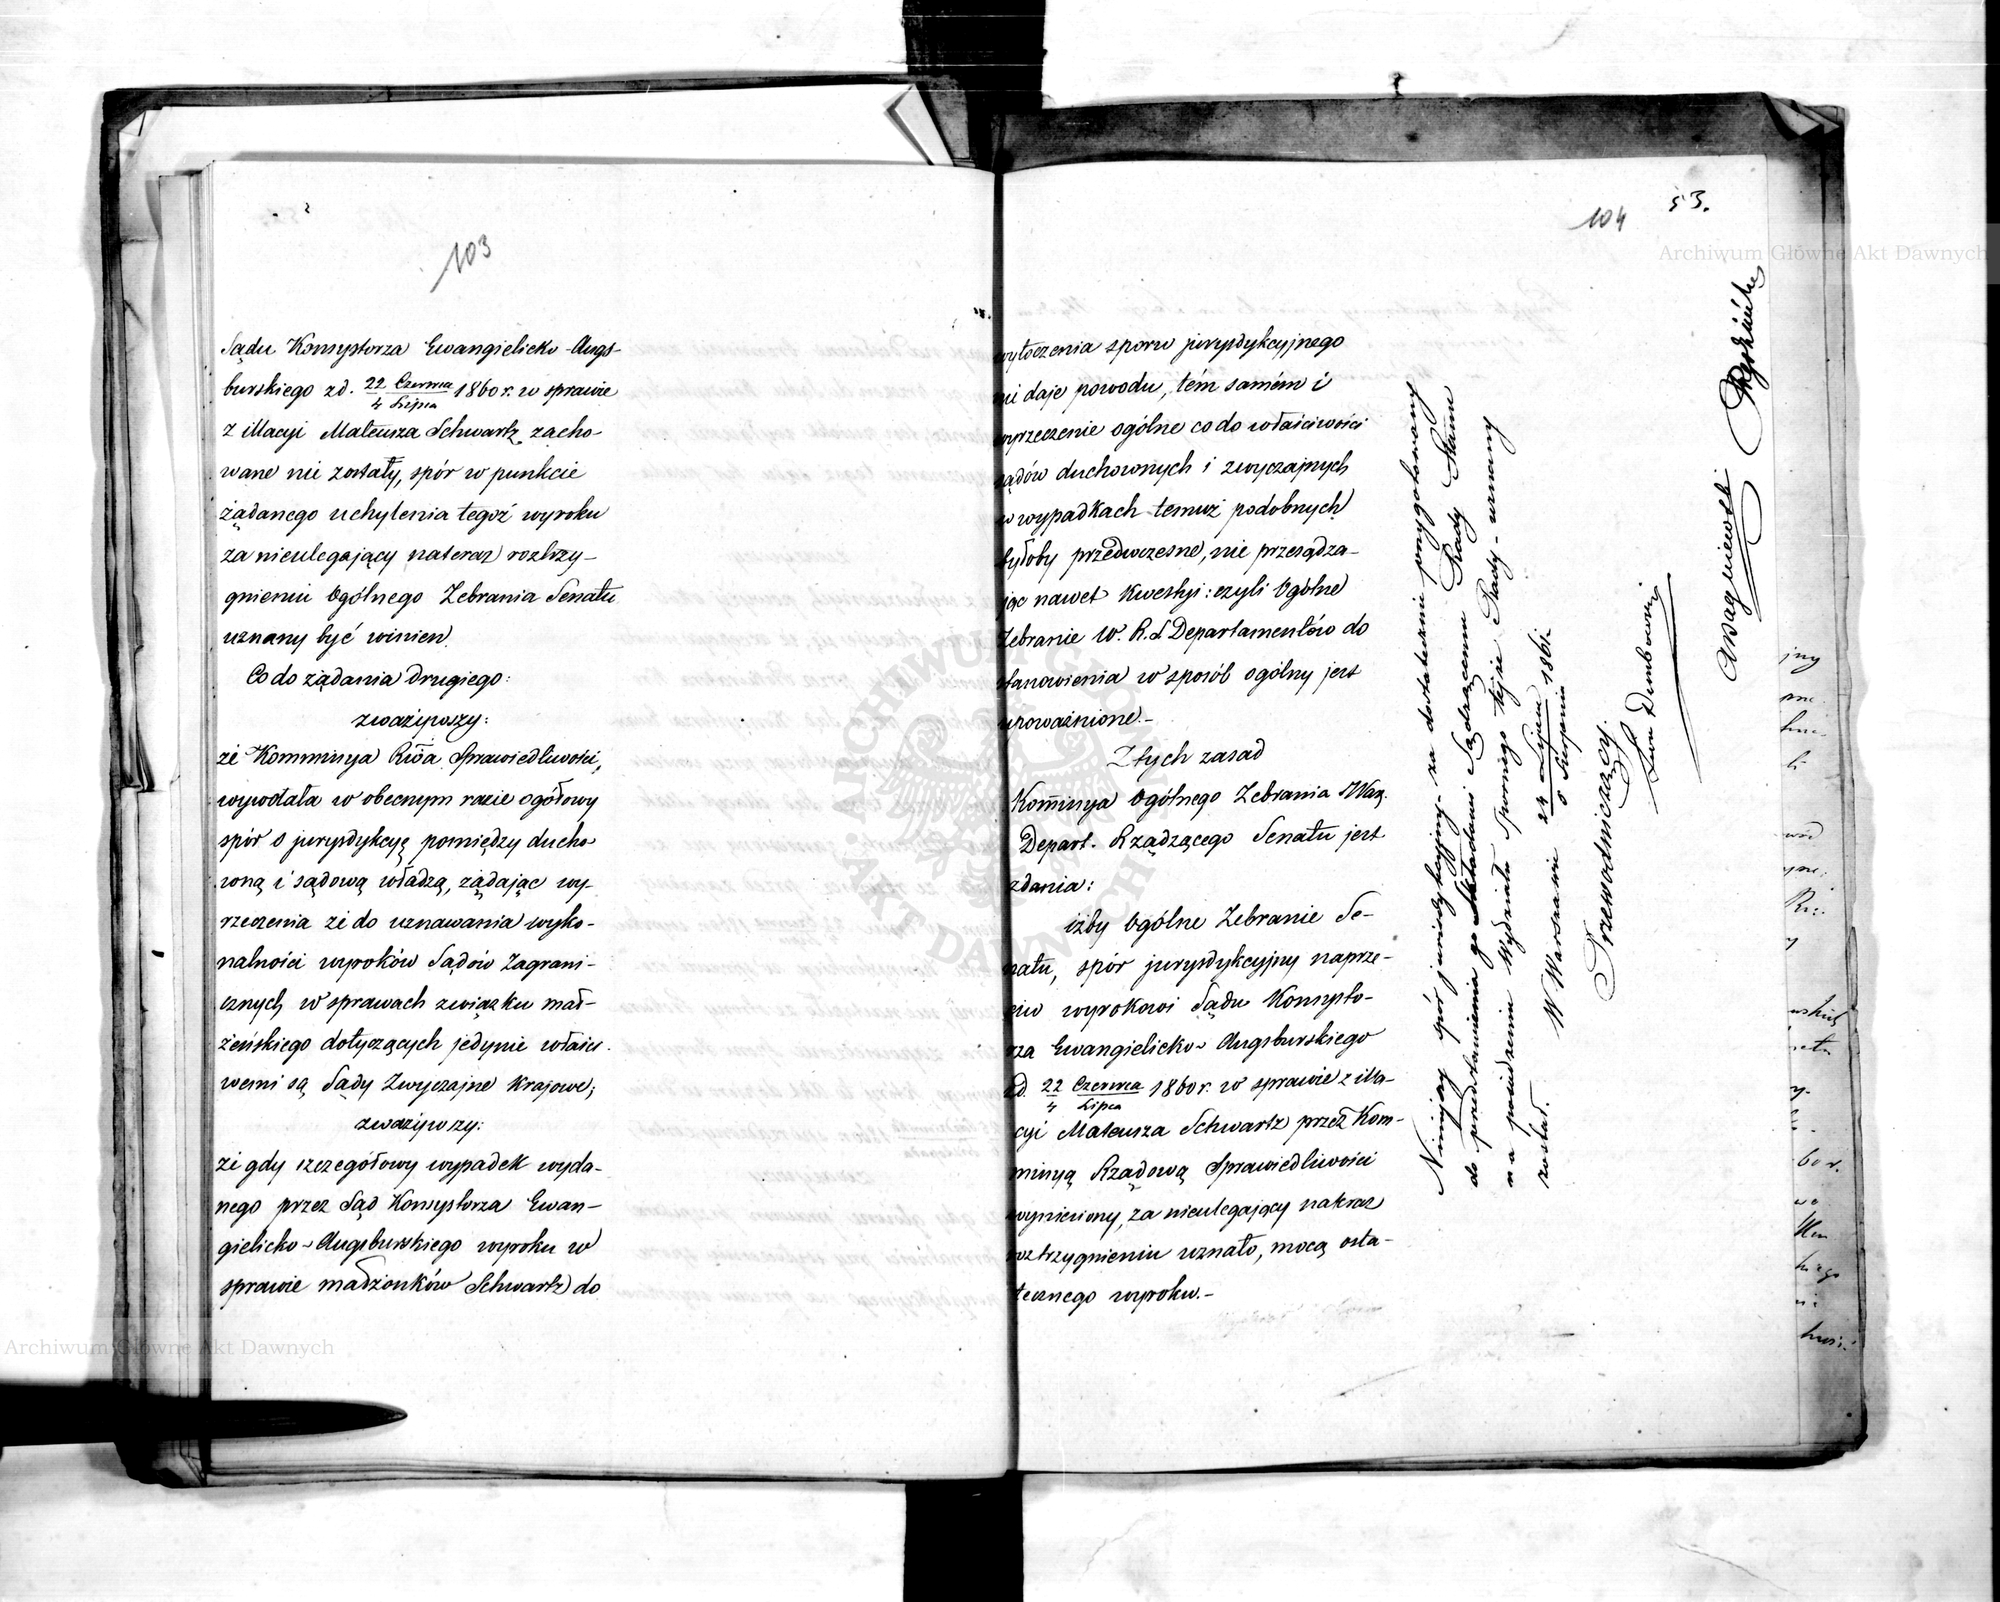 103
Sądu Konsystorza Ewangielicko-Augs-
burskiego zd. 22 Czerwca / 4 Lipca 1860 r. w sprawie
z illacyi Mateusza Schwartz zacho-
wane nie zostały, spór w punkcie
żądanego uchylenia tegoż wyroku
za nieulegający nateraz roztrzy-
gnieniu Ogólnego Zebrania Senatu
uznany być winien.
Co do żądania drugiego:
zważywszy:
że Kommisya Rwa Sprawiedliwości,
wywołała w obecnym razie ogółowy
spór o jurysdykcyą pomiędzy ducho-
wną i sądową władzą, żądając wy-
rzeczenia że do uznawania wyko-
nalności wyroków Sądów Zagrani-
cznych w sprawach związku mał-
żeńskiego dotyczących jedynie właści-
wemi są Sądy Zwyczajne Krajowe;
zważywszy:
że gdy szczegółowy wypadek wyda-
nego przez Sąd Konsystorza Ewan-
gielicko-Augsburskiego wyroku w
sprawie małżonków Schwartz do
104
53.
wytoczenia sporu jurysdykcyjnego
nie daje powodu, tém samém i
wyrzeczenie ogólne co do właściwości
sądów duchownych i zwyczajnych
w wypadkach temuż podobnych
byłoby przedwczesne, nie przesądza-
jąc nawet kwestyi: czyli Ogólne
Zebranie W. R. S. Departamentów do
stanowienia w sposób ogólny jest
upoważnione.-
Z tych zasad
Kommisya Ogólnego Zebrania Warsz.
Depart. Rządzącego Senatu jest
zdania:
iżby Ogólne Zebranie Se-
natu, spór jurysdykcyjny naprze-
ciw wyrokowi Sądu Konsysto-
rza Ewangielicko-Augsburskiego
zd. 22 Czerwca / 4 Lipca 1860 r. w sprawie z illa-
cyi Mateusza Schwartz przez Kom-
misyą Rządową Sprawiedliwości
wyniesiony, za nieulegający nateraz
roztrzygnieniu uznało, mocą osta-
tecznego wyroku.-
Niniejszy spór jurisdykcyjny - za dostatecznie przygotowany
do przedstawienia go Składowi Sądzącemu Rady Stanu
na posiedzeniu Wydziału Spornego tejże Rady - uznany
został.
W Warszawie 24 Lipca / 5 Sierpnia 1861 r.
Przewodniczący
Leon Dembowski
Archiwum Główne Akt Dawnych
Archiwum Główne Akt Dawnych
ARCHIWUM GŁÓWNE AKT DAWNYCH